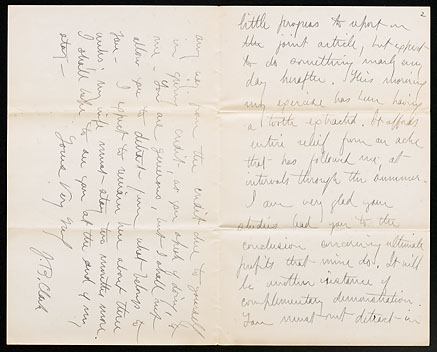 2
little progress to report on
the joint article, but expect
to do something nearly any
day hereafter. This morning
my exercise has been having
a tooth extracted. It affords
entire relief from an ache
that has followed me at
intervals through the summer.
I am very glad your
studies lead you to the
conclusion concerning ultimate
profits that mine do. It will
be another instance of
complementary demonstration.
You must not detract in
any way from the credit due to yourself
in giving credit, as you speak of doing, to
me. You are generous, but I shall not
allow you to detract from what belongs to
you. I expect to remain here about three
weeks; my wife must stay two months more.
I shall like to see you at the end of my
stay.
Yours Very Truly
J. B. Clark